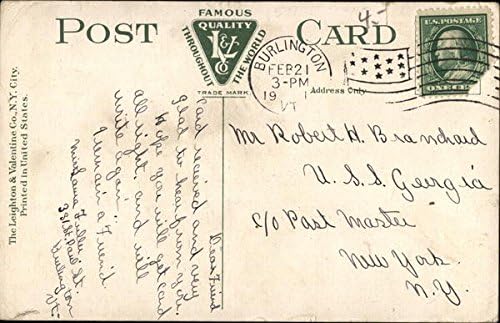 POST CARD
FAMOUS
QUALITY
THROUGHOUT THE WORLD
L&V Co
TRADE MARK
4-
BURLINGTON
FEB 21
3-PM
19
VT
U.S. POSTAGE
ONE CENT
Address Only
The Leighton & Valentine Co., N.Y. City.
Printed in United States.
Dear Friend
Card received and very
glad to hear from you.
Hope you will get card
all right, and will
write again.
I remain a Friend
Miss Lana Fuller
St. Paul St.
Burlington
Vt.
Mr Robert H. Branchaud
U.S.S. Georgia
c/o Post Master
New York
N.Y.